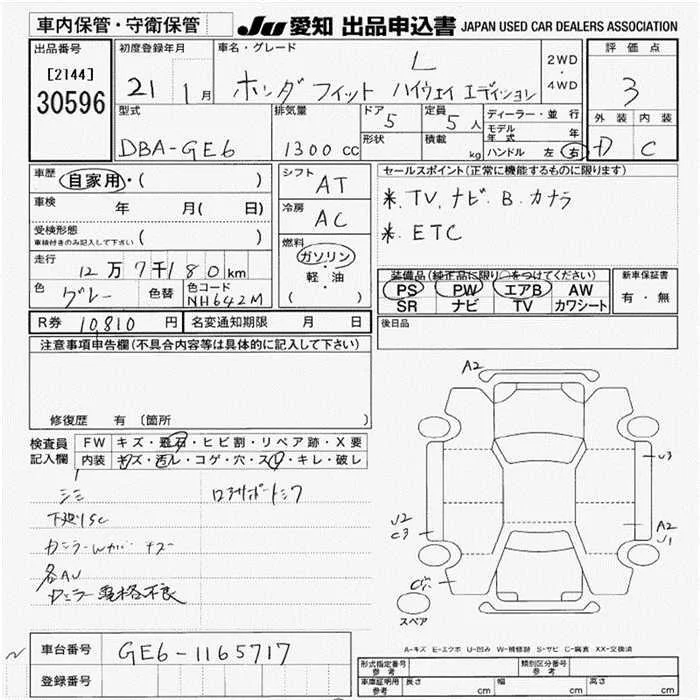 車内保管・守衛保管
JU 愛知 出品申込書 JAPAN USED CAR DEALERS ASSOCIATION
出品番号 初度登録年月 車名・グレード 評価点
[2144]
30596
21 1月
L
ホンダ フィット ハイウェイ エディション
2WD
・
4WD
3
外装 内装
D C
型式 排気量 ドア 定員 ディーラー・並行
DBA-GE6 1300 CC 5 5人
形状 積載 kg
モデル年式 年
ハンドル 左 右
車歴 自家用・( )
車検 年 月( 日)
受検形態
車検付きのみ記入して下さい ( )
走行 12万7千180km
色 グレー 色替 色コード NH642M
シフト AT
冷房 AC
燃料
ガソリン
・
軽・油
( )
セールスポイント(正常に機能するものに限ります)
※.TV.ナビ.B.カメラ
※.ETC
装備品(純正品に限り○をつけてください) 新車保証書
PS PW エアB AW 有・無
SR ナビ TV カワシート
R券 10,810円 名変通知期限 月 日
後日品
注意事項申告欄(不具合内容等は具体的に記入して下さい)
修復歴 有 〔箇所
検査員
記入欄
FW キズ・飛石・ヒビ割・リペア跡・X要
内装 キズ・汚ル・コゲ・穴・スレ・キレ・破レ
シミ
下廻りSC
各AU
ドアミラー電格不良
A2
J3
J2
C3
A2
J1
C穴
スペア
A-キズ E-エクボ U-凹み W-補修跡 S-サビ C-腐食 XX-交換済
車台番号 GE6-1165717
登録番号
形式指定番号 参考 類別区分番号 参考
車庫証明用 参考 長さ cm 幅 cm 高さ cm